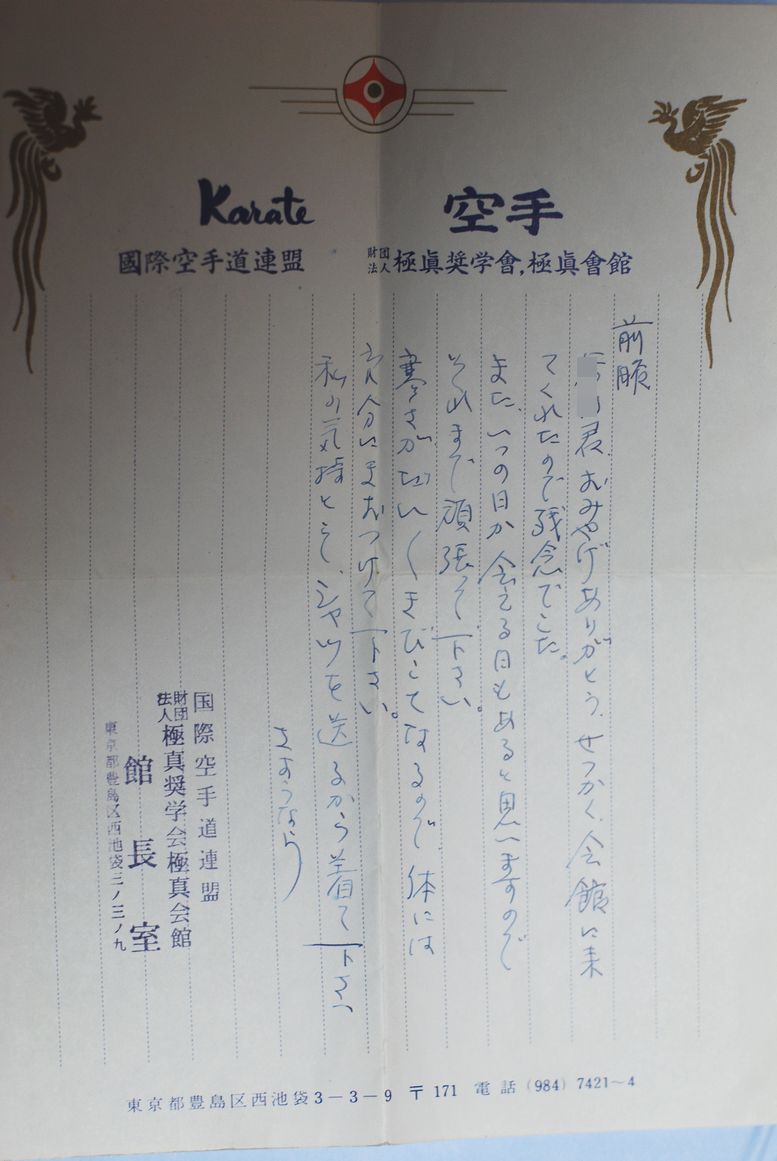 Karate 空手
國際空手道連盟 財団法人 極眞奨学會,極眞會館
前略
君、おみやげありがとう、せっかく、会館に来
てくれたので残念でした。
また、いつの日か会える日もあると思いますので
それまで頑張って下さい。
寒さがだいぶきびしくなるので、体には
充分に気おつけて下さい。
私の気持として、シャツを送るから着て下さい
さようなら
国際空手道連盟
財団法人 極真奨学会極真会館
館長室
東京都豊島区西池袋三ノ三ノ九
東京都豊島区西池袋3-3-9 〒171 電話 (984) 7421~4